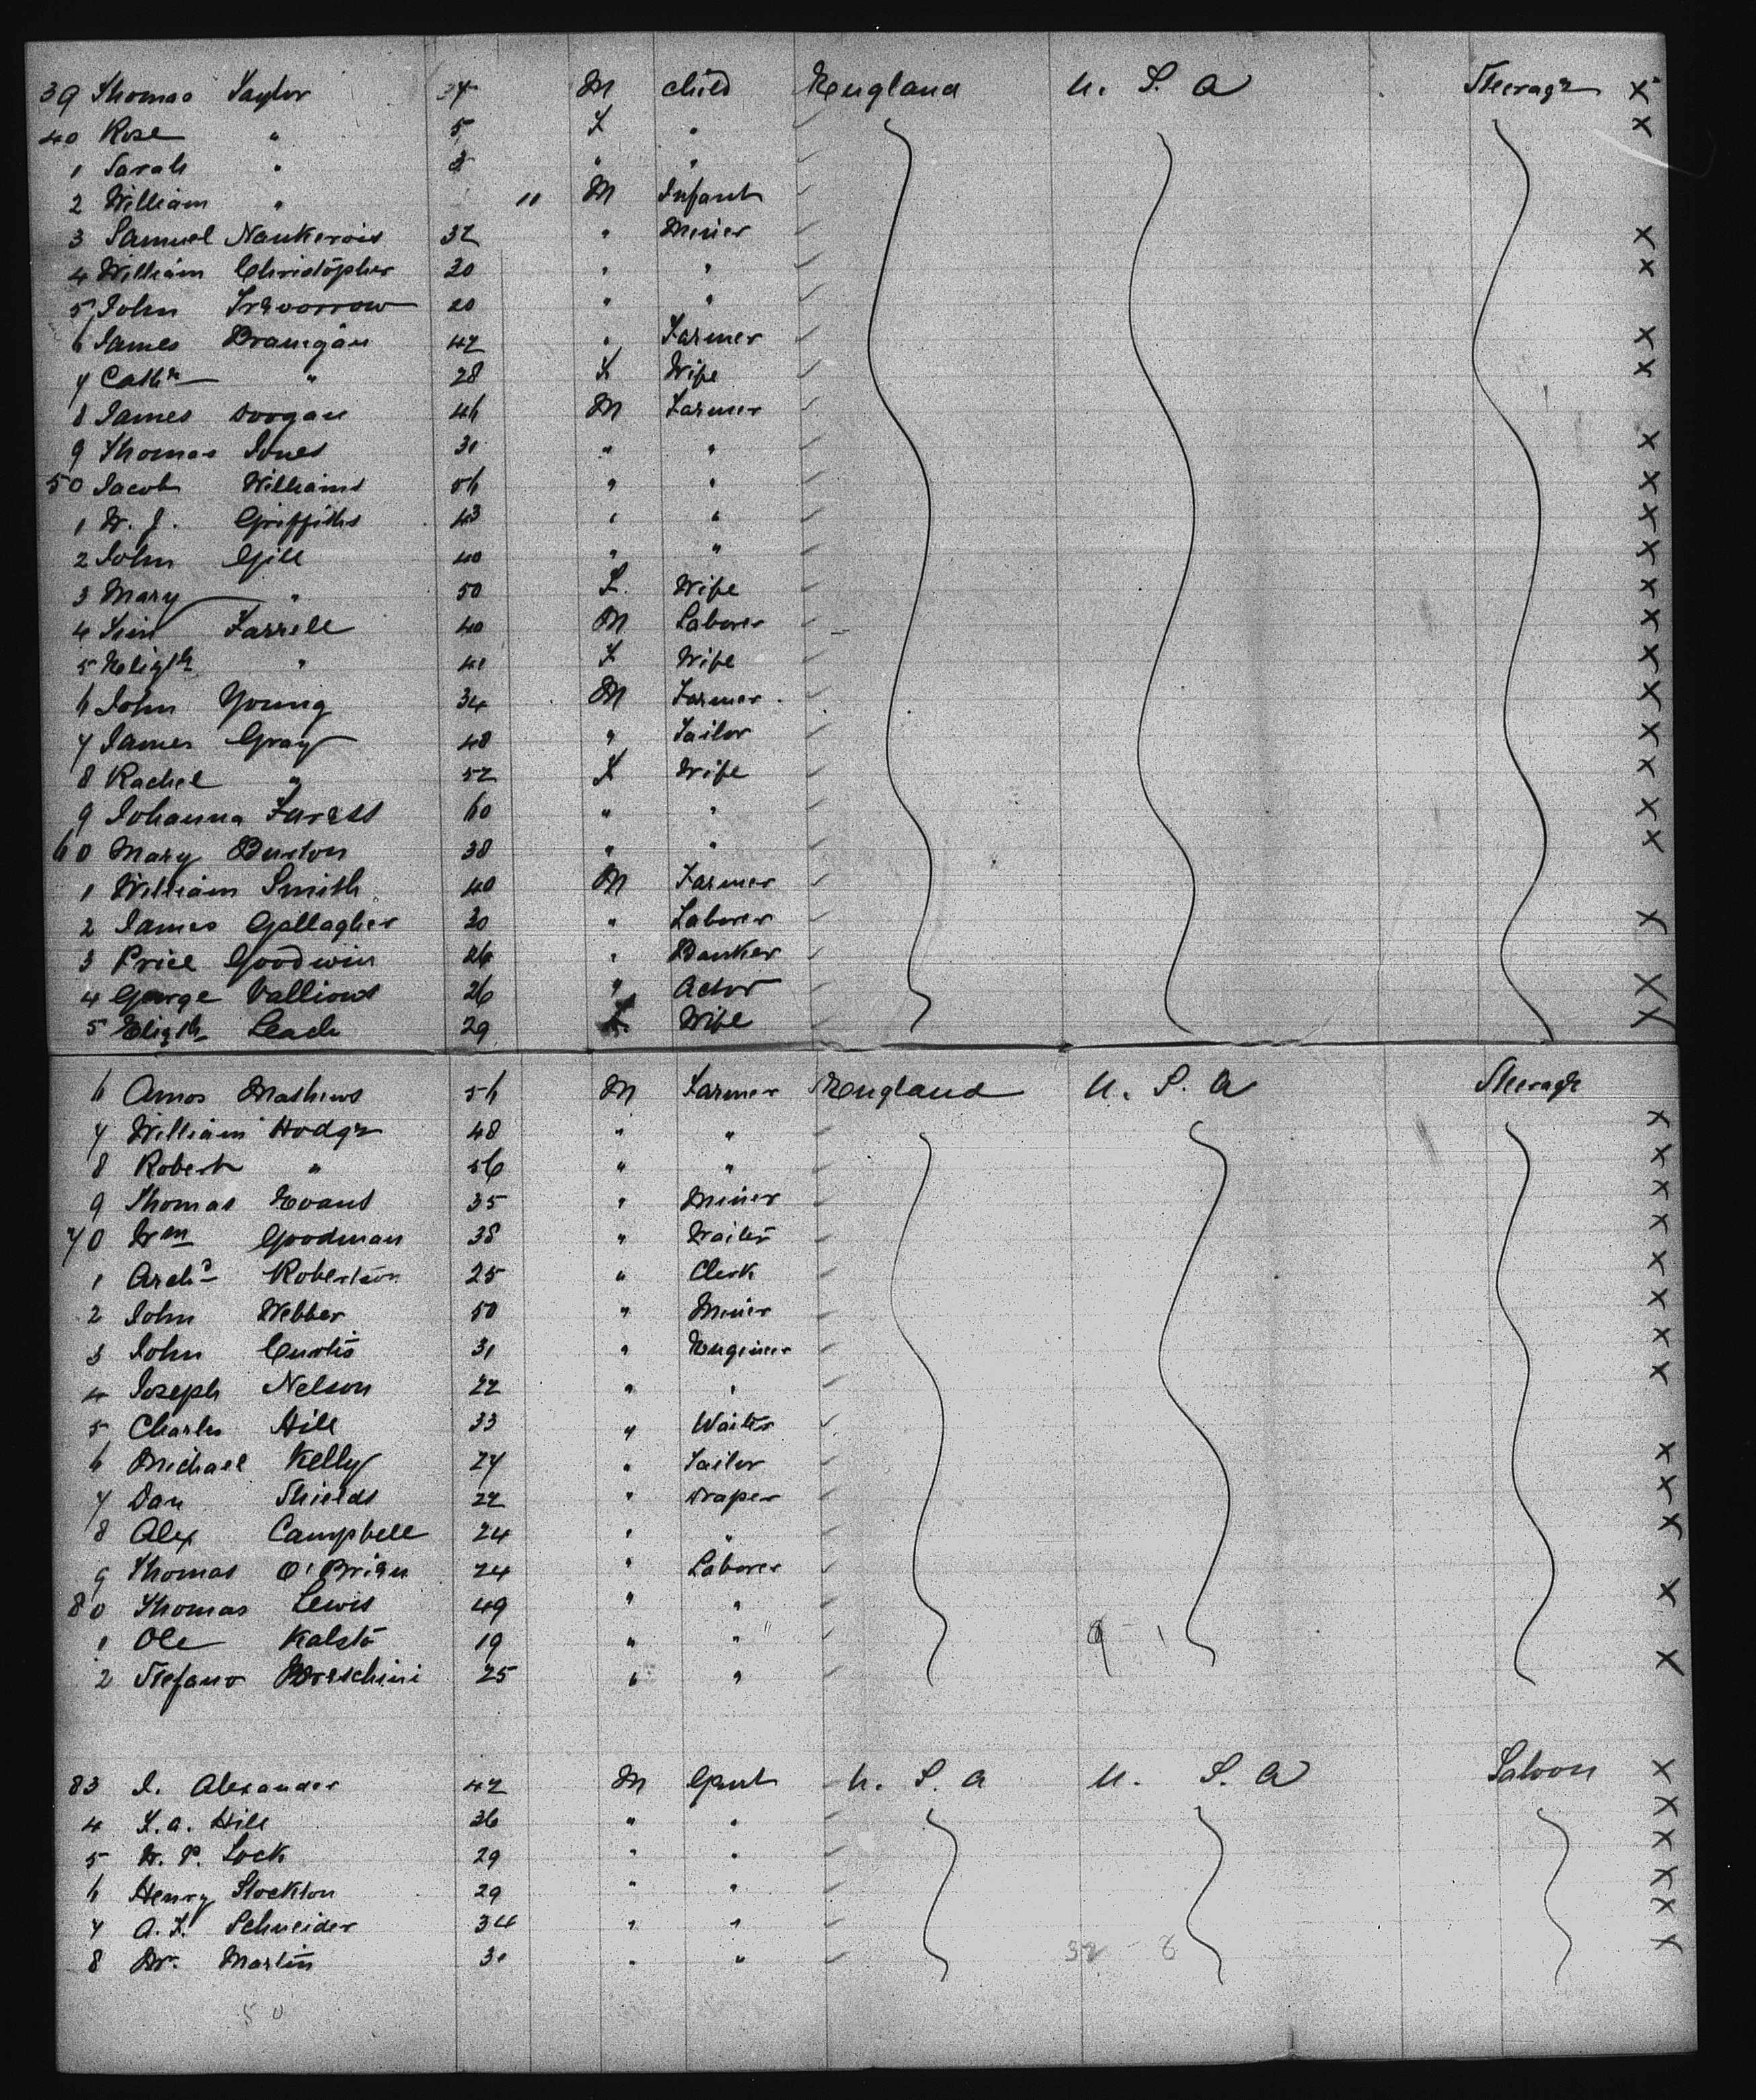 39 Thomas Taylor M child England U. S. A Steerage X
40 Rose " 5 F " X
1 Sarah " " "
2 William " 11 M Infant
3 Samuel 32 " Miner X
4 William Christopher 30 " " X
5 John Trevorrow 20 " "
6 James Branigan 42 " Farmer X
7 Cathn " 28 F Wife X
8 James Doogan 46 M Farmer
9 Thomas Jones 31 " " X
50 Jacob Williams 56 " " X
1 W. J. Griffiths 43 " " X
2 John Gill 40 " " X
3 Mary " 50 F. Wife X
4 Farrell 40 M Laborer X
5 Elizth " 41 F Wife X
6 John Young 34 M Farmer X
7 James Gray 48 " Tailor X
8 Rachel " 52 F Wife X
9 Johanna 60 " " X
60 Mary Burton 38 " " X
1 William Smith 40 M Farmer
2 James Gallagher 30 " Laborer X
3 Price Goodwin 26 " Banker
4 George 26 " Actor X
5 Elizth Leach 29 F. Wife X
6 Amos Mathews 56 M Farmer England U. S. A Steerage
7 William Hodge 48 " " X
8 Robert " 56 " " X
9 Thomas Evans 35 " Miner X
70 Wm Goodman 38 " X
1 Archd Robertson 25 " Clerk X
2 John Webber 50 " Miner X
3 John Curtis 31 " Engineer X
4 Joseph Nelson 22 " " X
5 Charles Hill 33 " Waiter
6 Michael Kelly 27 " Tailor X
7 Dan Shields 22 " Draper X
8 Alex Campbell 24 " " X
9 Thomas O'Brien 24 " Laborer
80 Thomas Lewis 49 " " X
1 Ole Kalstö 19 " "
2 Stefano 25 " " X
83 J. Alexander 42 M Gent U. S. A U. S. A Saloon X
4 F. A. Hill 36 " " X
5 W. P. Lock 29 " " X
6 Henry Stockton 29 " " X
7 A. F. Schneider 34 " " X
8 Dr. Martin 30 " " X
50